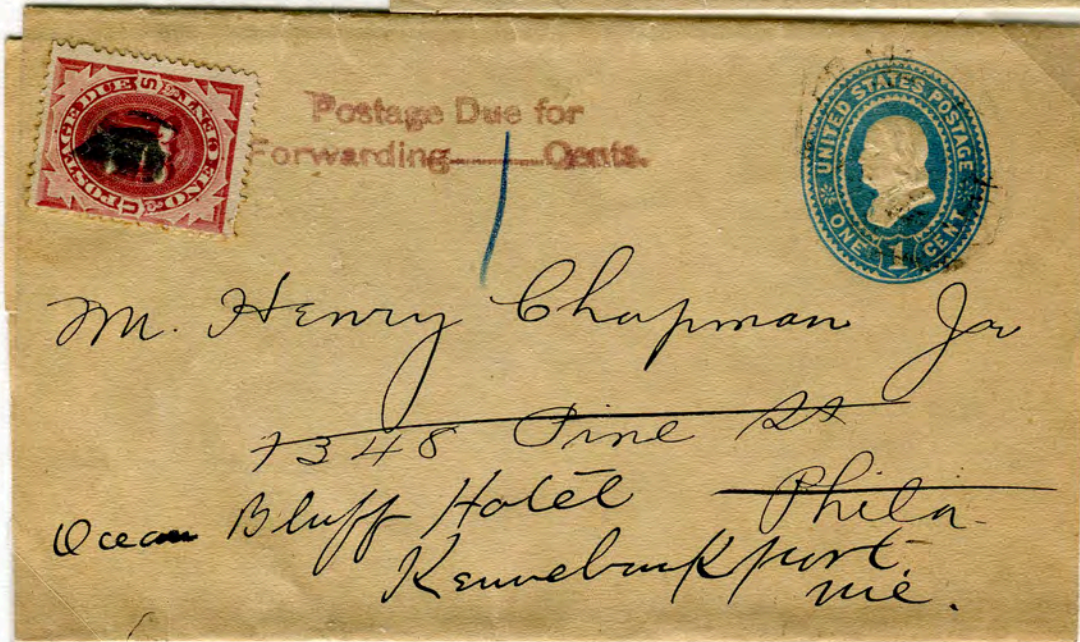 POSTAGE DUE
ONE CENT
U S
Postage Due for
Forwarding 1 Cents.
UNITED STATES POSTAGE
ONE 1 CENT
M. Henry Chapman Jr
1348 Pine St
Phila
Ocean Bluff Hotel
Kennebunkport.
Me.